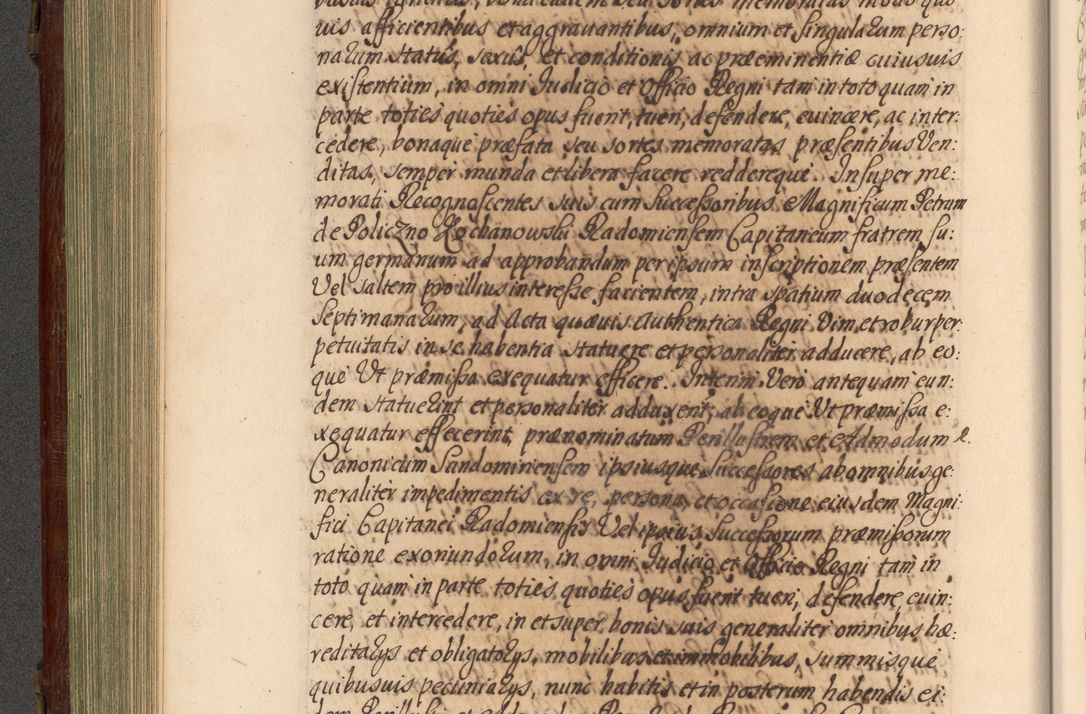 uis afficientibus et aggrauantibus, omnium et singularum perso:
narum status, sexus, et conditionis ac præeminentiæ cuiusuis
existentium, in omni Iudicio et Officio Regni tam in toto quam in
parte toties quoties opus fuerit, tueri, defendere, euincere, ac inter:
cedere, bonaque præfata seu sortes memoratas præsentibus Ven:
ditas, semper munda et libera facere reddereque. Insuper me:
morati Recognoscentes suis cum Successoribus Magnificum Petrum
de Policzno Kochanowski Radomiensem Capitaneum fratrem su:
um germanum ad approbandum per ipsum inscriptionem præsentem
Vel saltem pro illius interesse facientem, intra spatium duodecem
Septimanarum, ad Acta quæuis Authentica Regni Vim et robur per:
petuitatis in se habentia statuere et personaliter adducere, ab eo:
que Ut præmissa exequatur efficere. Interim Vero antequam eun:
dem statuerint et personaliter adduxerint, ab eoque Ut præmissa e:
xequatur effecerint, prænominatum Perillustrem et Admodum R.
Canonicum Sandomiriensem ipsiusque Successores ab omnibus ge:
neraliter impedimentis ex re, persona, et occasione eiusdem Magni:
fici Capitanei Radomiensis Vel ipsius Successorum præmissorum
ratione exoriundorum, in omni Iudicio et Officio Regni tam in
toto quam in parte toties quoties opus fuerit tueri, defendere, euin:
cere, et intercedere, in et super bonis suis generaliter omnibus hæ:
reditarys et obligatorys, mobilibus et immobilibus, summisque
quibusuis pecuniarys, nunc habitis et in posterum habendis ei: